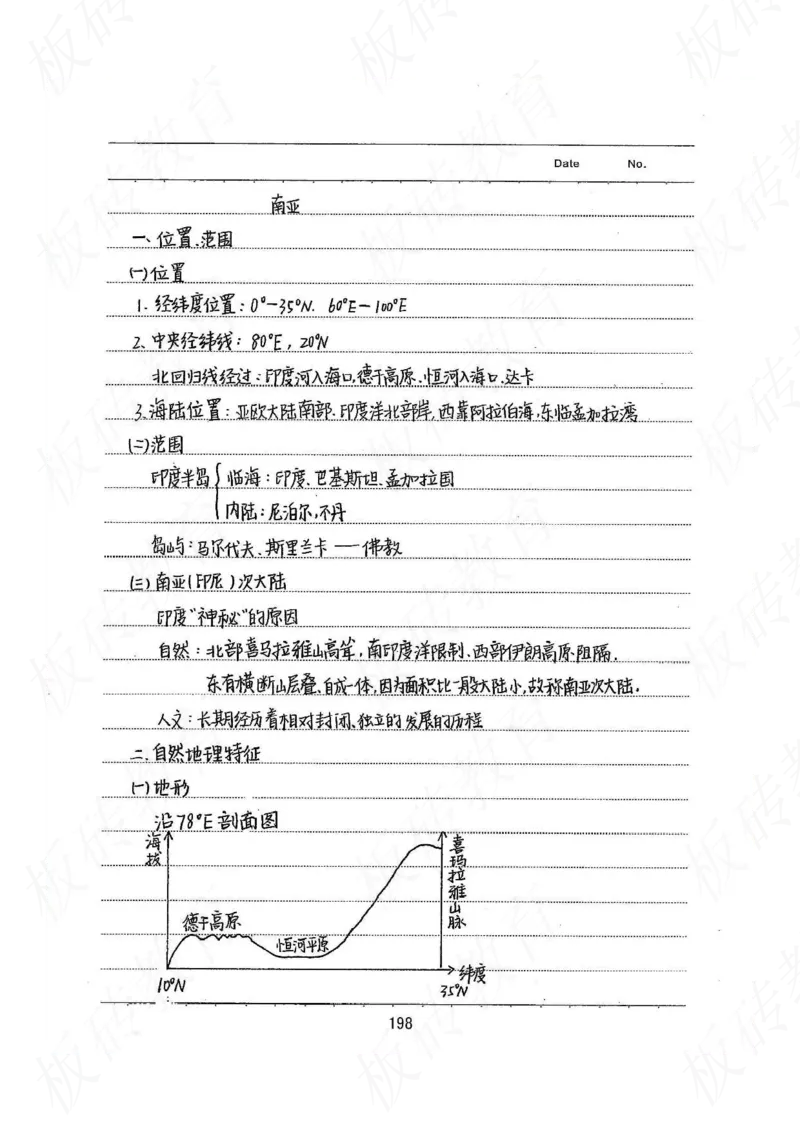 Date No.
南亚
一、位置、范围
(一)位置
1. 经纬度位置：0°—35°N. 60°E—100°E
2、中央经纬线：80°E，20°N
北回归线经过：印度河入海口、德干高原、恒河入海口、达卡
3、海陆位置：亚欧大陆南部、印度洋北部岸，西靠阿拉伯海，东临孟加拉湾
(二)范围
印度半岛 临海：印度、巴基斯坦、孟加拉国
内陆：尼泊尔，不丹
岛屿：马尔代夫、斯里兰卡——佛教
(三)南亚(印尼)次大陆
印度"神秘"的原因
自然：北部喜马拉雅山高耸，南印度洋限制、西部伊朗高原阻隔，
东有横断山层叠、自成一体，因为面积比一般大陆小，故称南亚次大陆.
人文：长期经历着相对封闭、独立的发展的历程
二、自然地理特征
(一)地形
沿78°E剖面图
海拔
喜玛拉雅山脉
德干高原
恒河平原
纬度
10°N
35°N
198
板砖教育